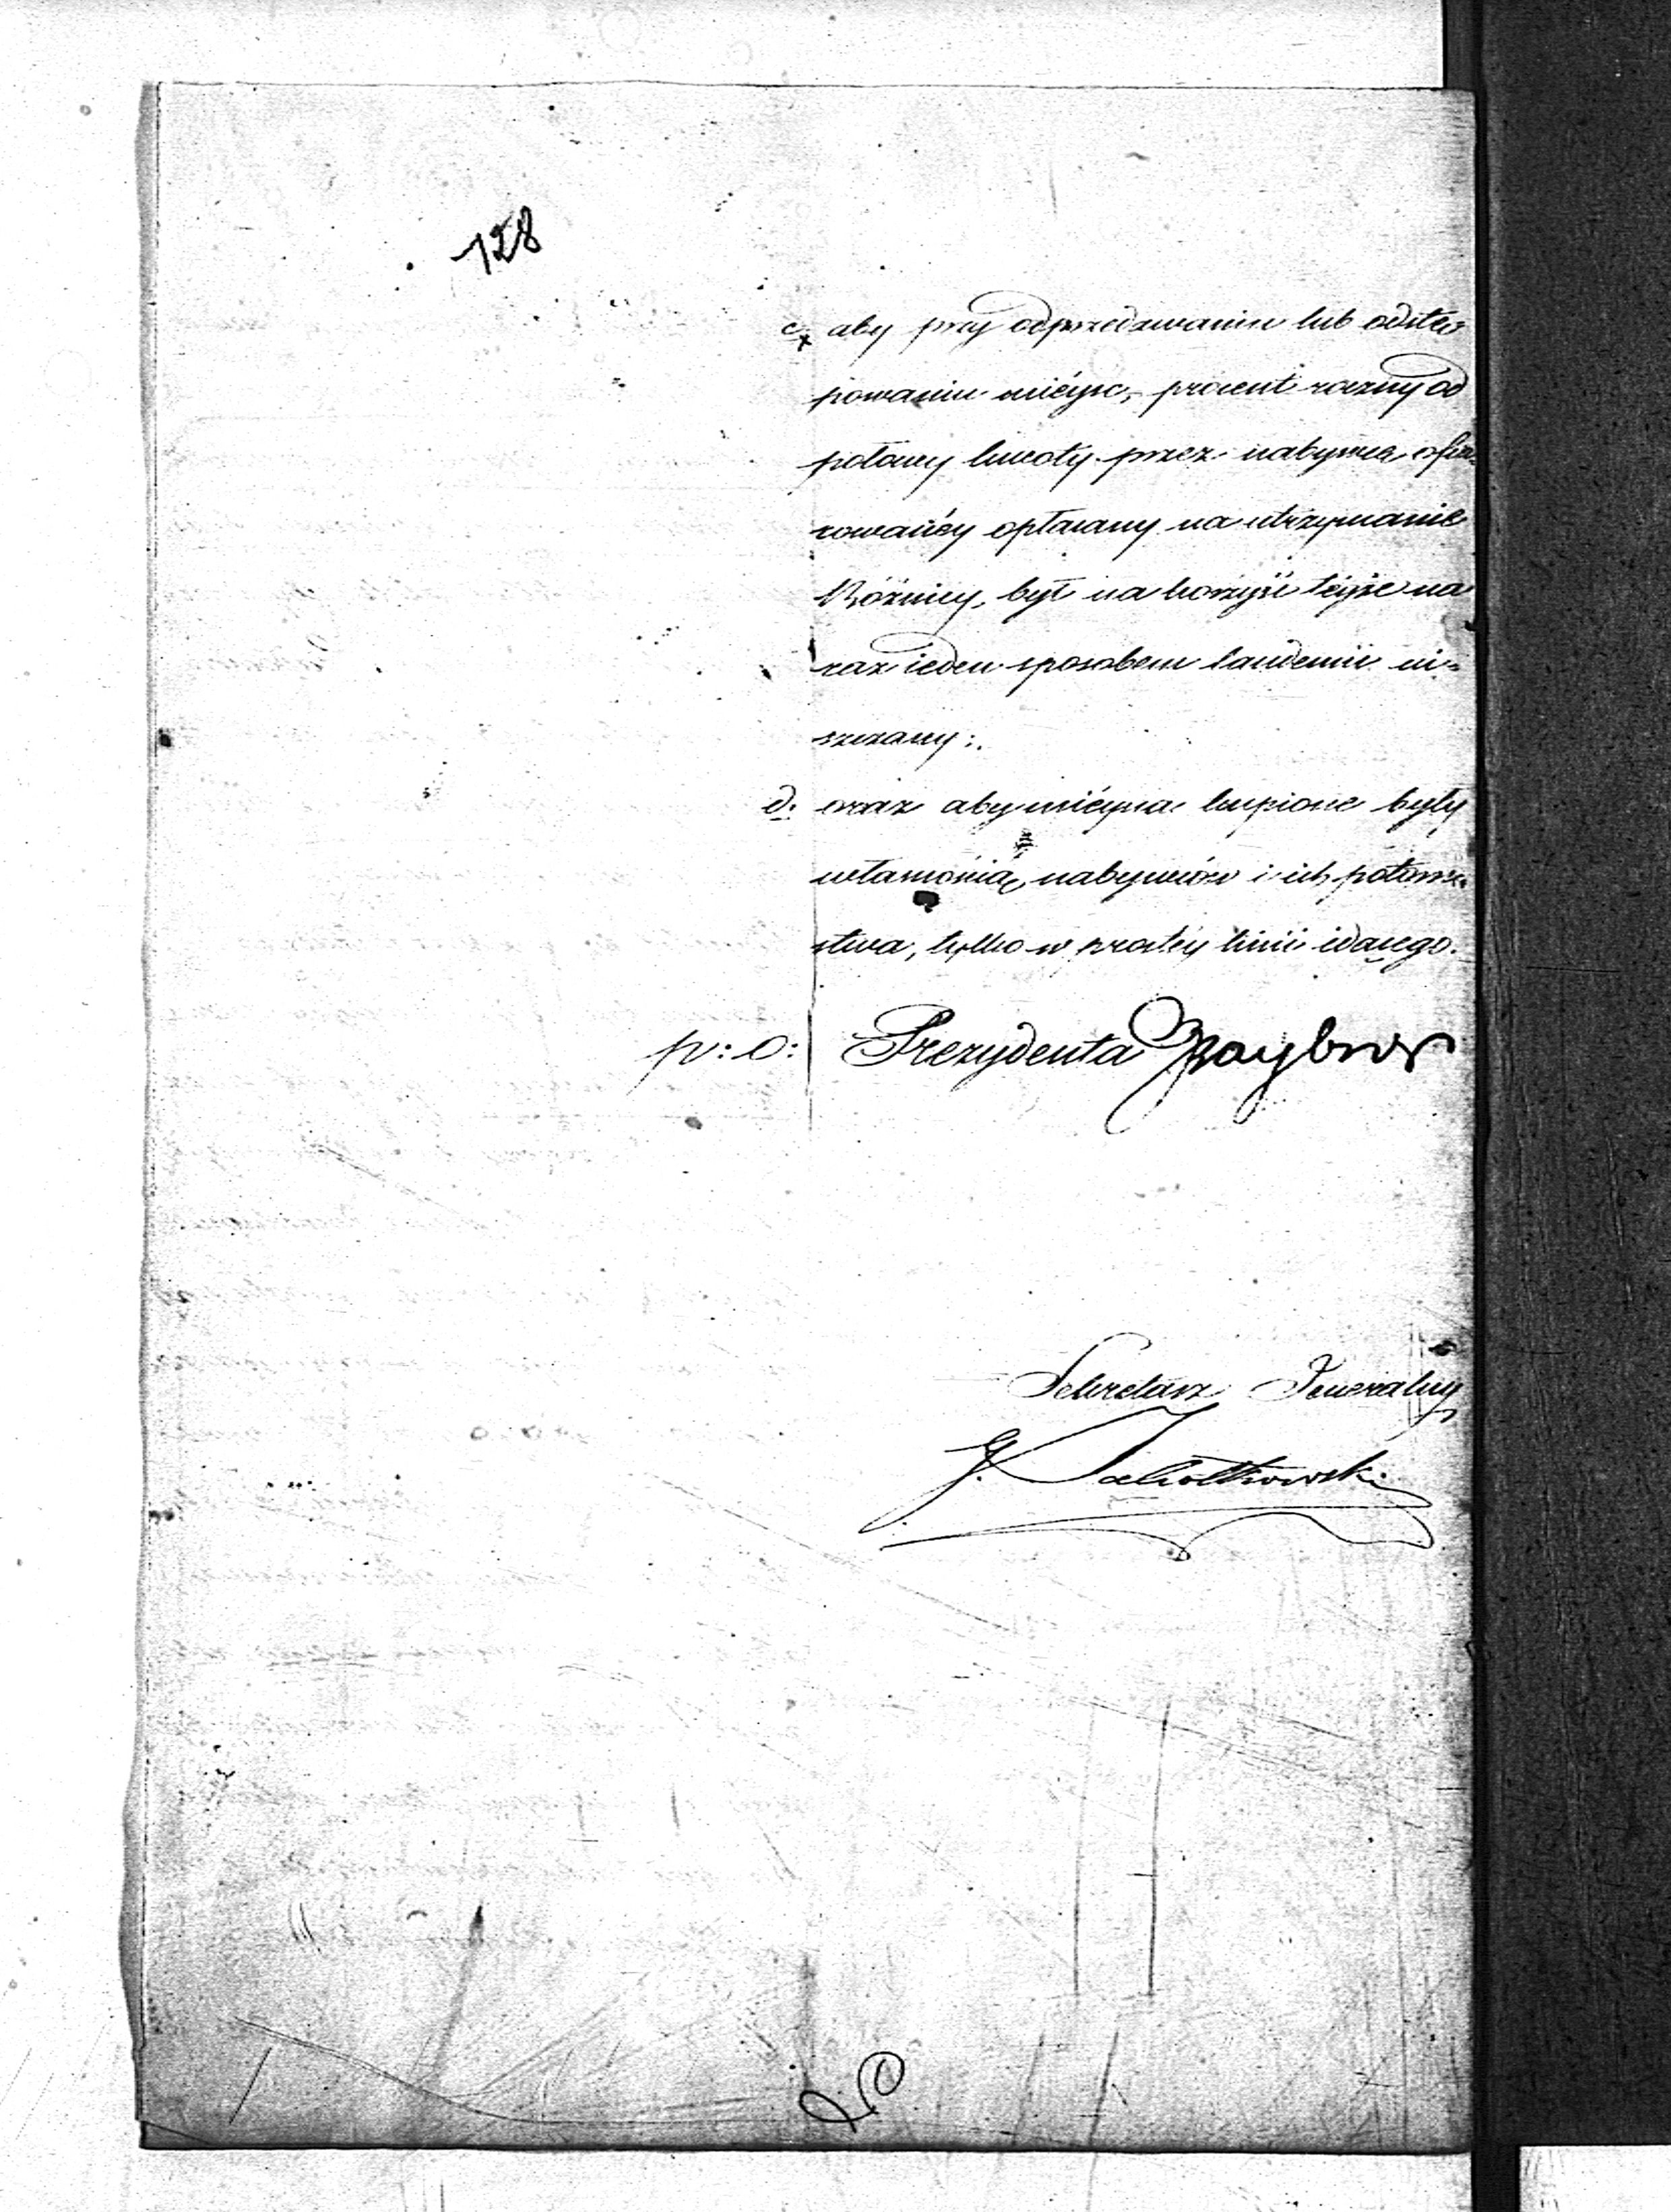 128
c. aby przy odprzedawaniu lub odstę-
powaniu miéysc, procent roczny od
połowy kwoty przez nabywcę ofia-
rowanéy opłacany na utrzymanie
Bóżnicy, był na korzyść téyże na
raz ieden sposobem laudemii ui-
szczany:
d. oraz aby miéysca kupione były
własnością nabywców i ich potom-
stwa, tylko w prostéy linii idącego.
p: o: Prezydenta
Sekretarz Jeneralny
J.